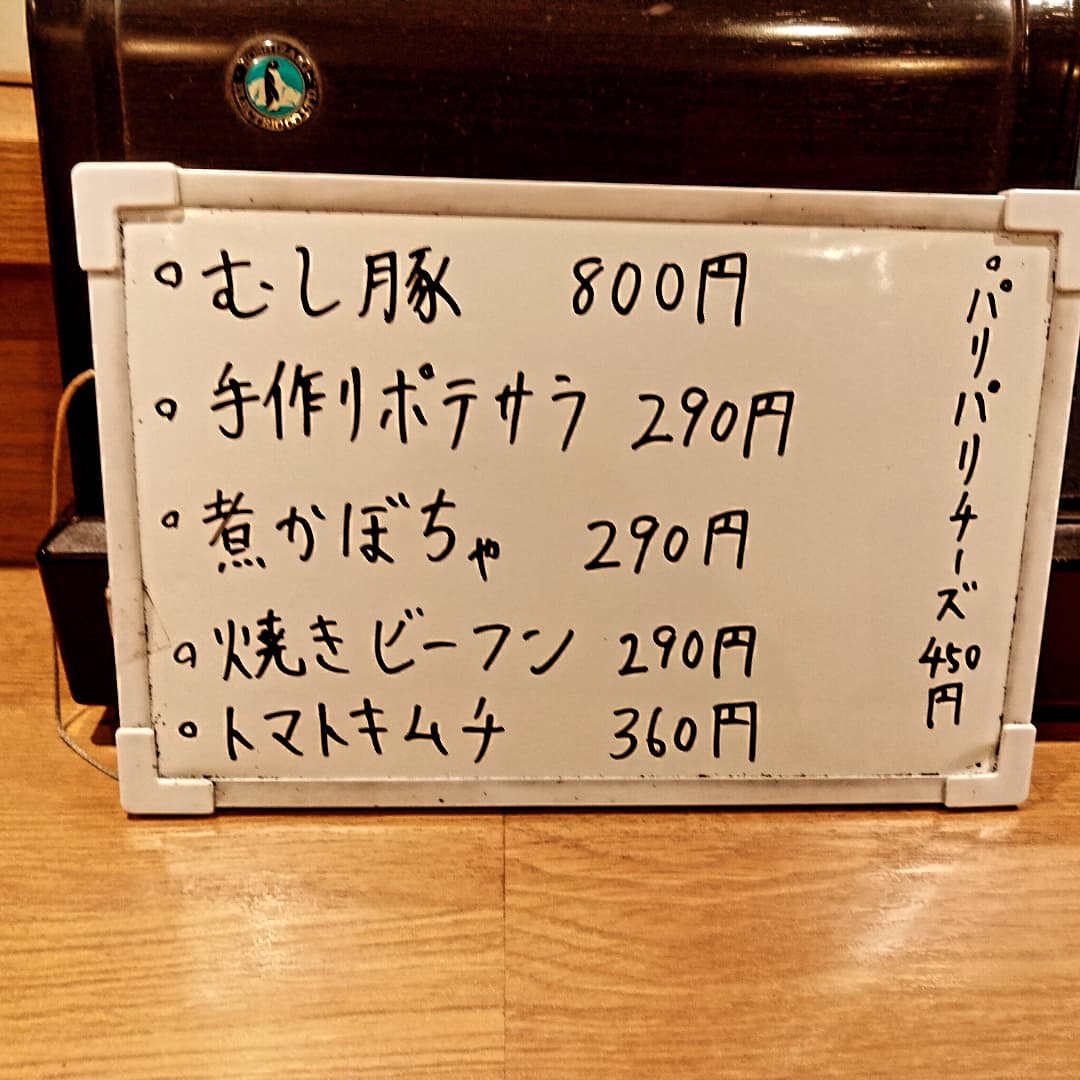 HOSHIZAKI ELECTRIC CO.,LTD.
。むし豚 800円
。手作りポテサラ 290円
。煮かぼちゃ 290円
。焼きビーフン 290円
。トマトキムチ 360円
。パリパリチーズ 450円